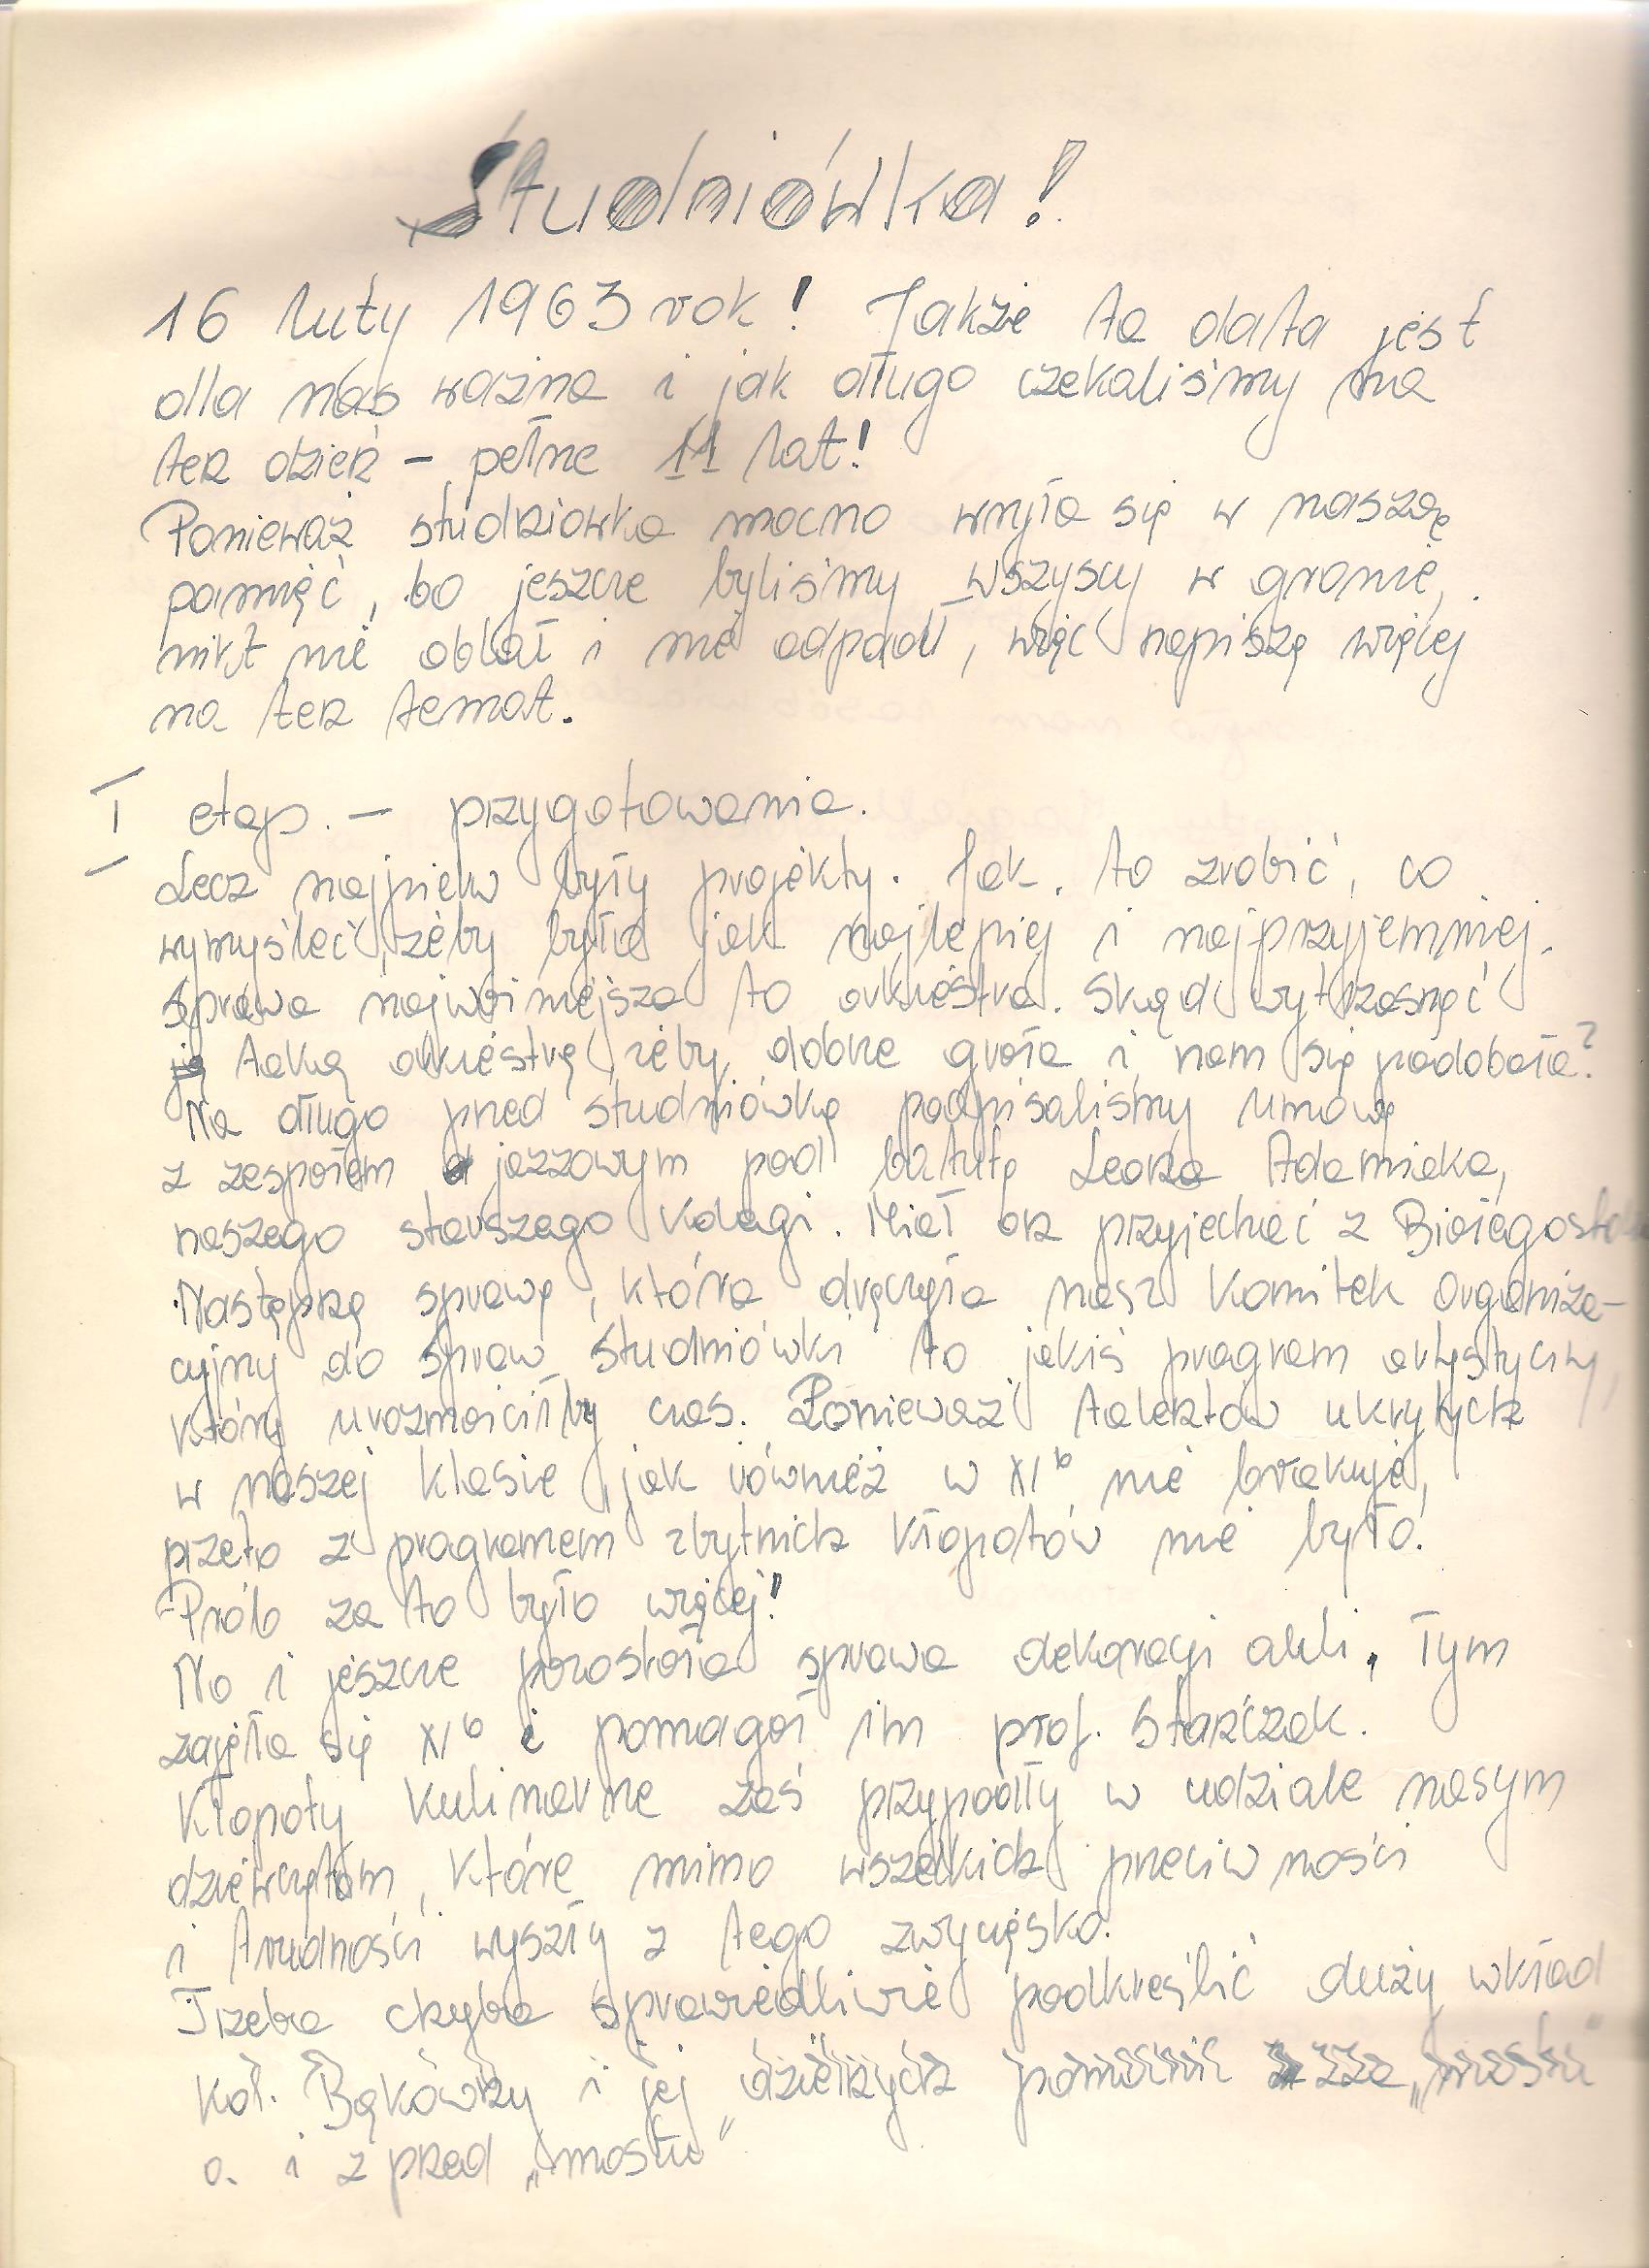 Studniówka!
16 luty 1963 rok! Jakże ta data jest
dla nas ważna i jak długo czekaliśmy na
ten dzień – pełne 11 lat!
Ponieważ studniówka mocno wryła się w naszą
pamięć, bo jeszcze byliśmy wszyscy w gronie,
nikt nie oblał i nie odpadł, więc napiszę więcej
na ten temat.
I etap. – przygotowania.
Lecz najpierw były projekty. Jak to zrobić, co
wymyśleć, żeby było jak najlepiej i najprzyjemniej.
Sprawa najważniejsza to orkiestra. Skąd wytrzasnąć
taką orkiestrę, żeby dobrze grała i nam się podobała?
Na długo przed studniówką podpisaliśmy umowę
z zespołem jazzowym pod batutą Leona Adamiaka,
naszego starszego kolegi. Miał on przyjechać z Białegosto
Następną sprawą, która dręczyła nasz Komitek Organiza-
cyjny do spraw studniówki to jakiś program artystyczny,
który urozmaiciłby czas. Ponieważ talentów ukrytych
w naszej klasie, jak również w XIb nie brakuje,
przeto z programem zbytnich kłopotów nie było.
Prób za to było więcej!
No i jeszcze pozostała sprawa dekoracji auli. Tym
zajęła się XIb i pomagał im prof. Stańczak.
Kłopoty kulinarne zaś przypadły w udziale naszym
dziewczętom, które mimo wszelkich przeciwności
i trudności wyszły z tego zwycięsko.
Trzeba chyba sprawiedliwie podkreślić duży wkład
kol. Bąkówny i jej dzielnych zza „mostu"
o. i z przed „mostu"